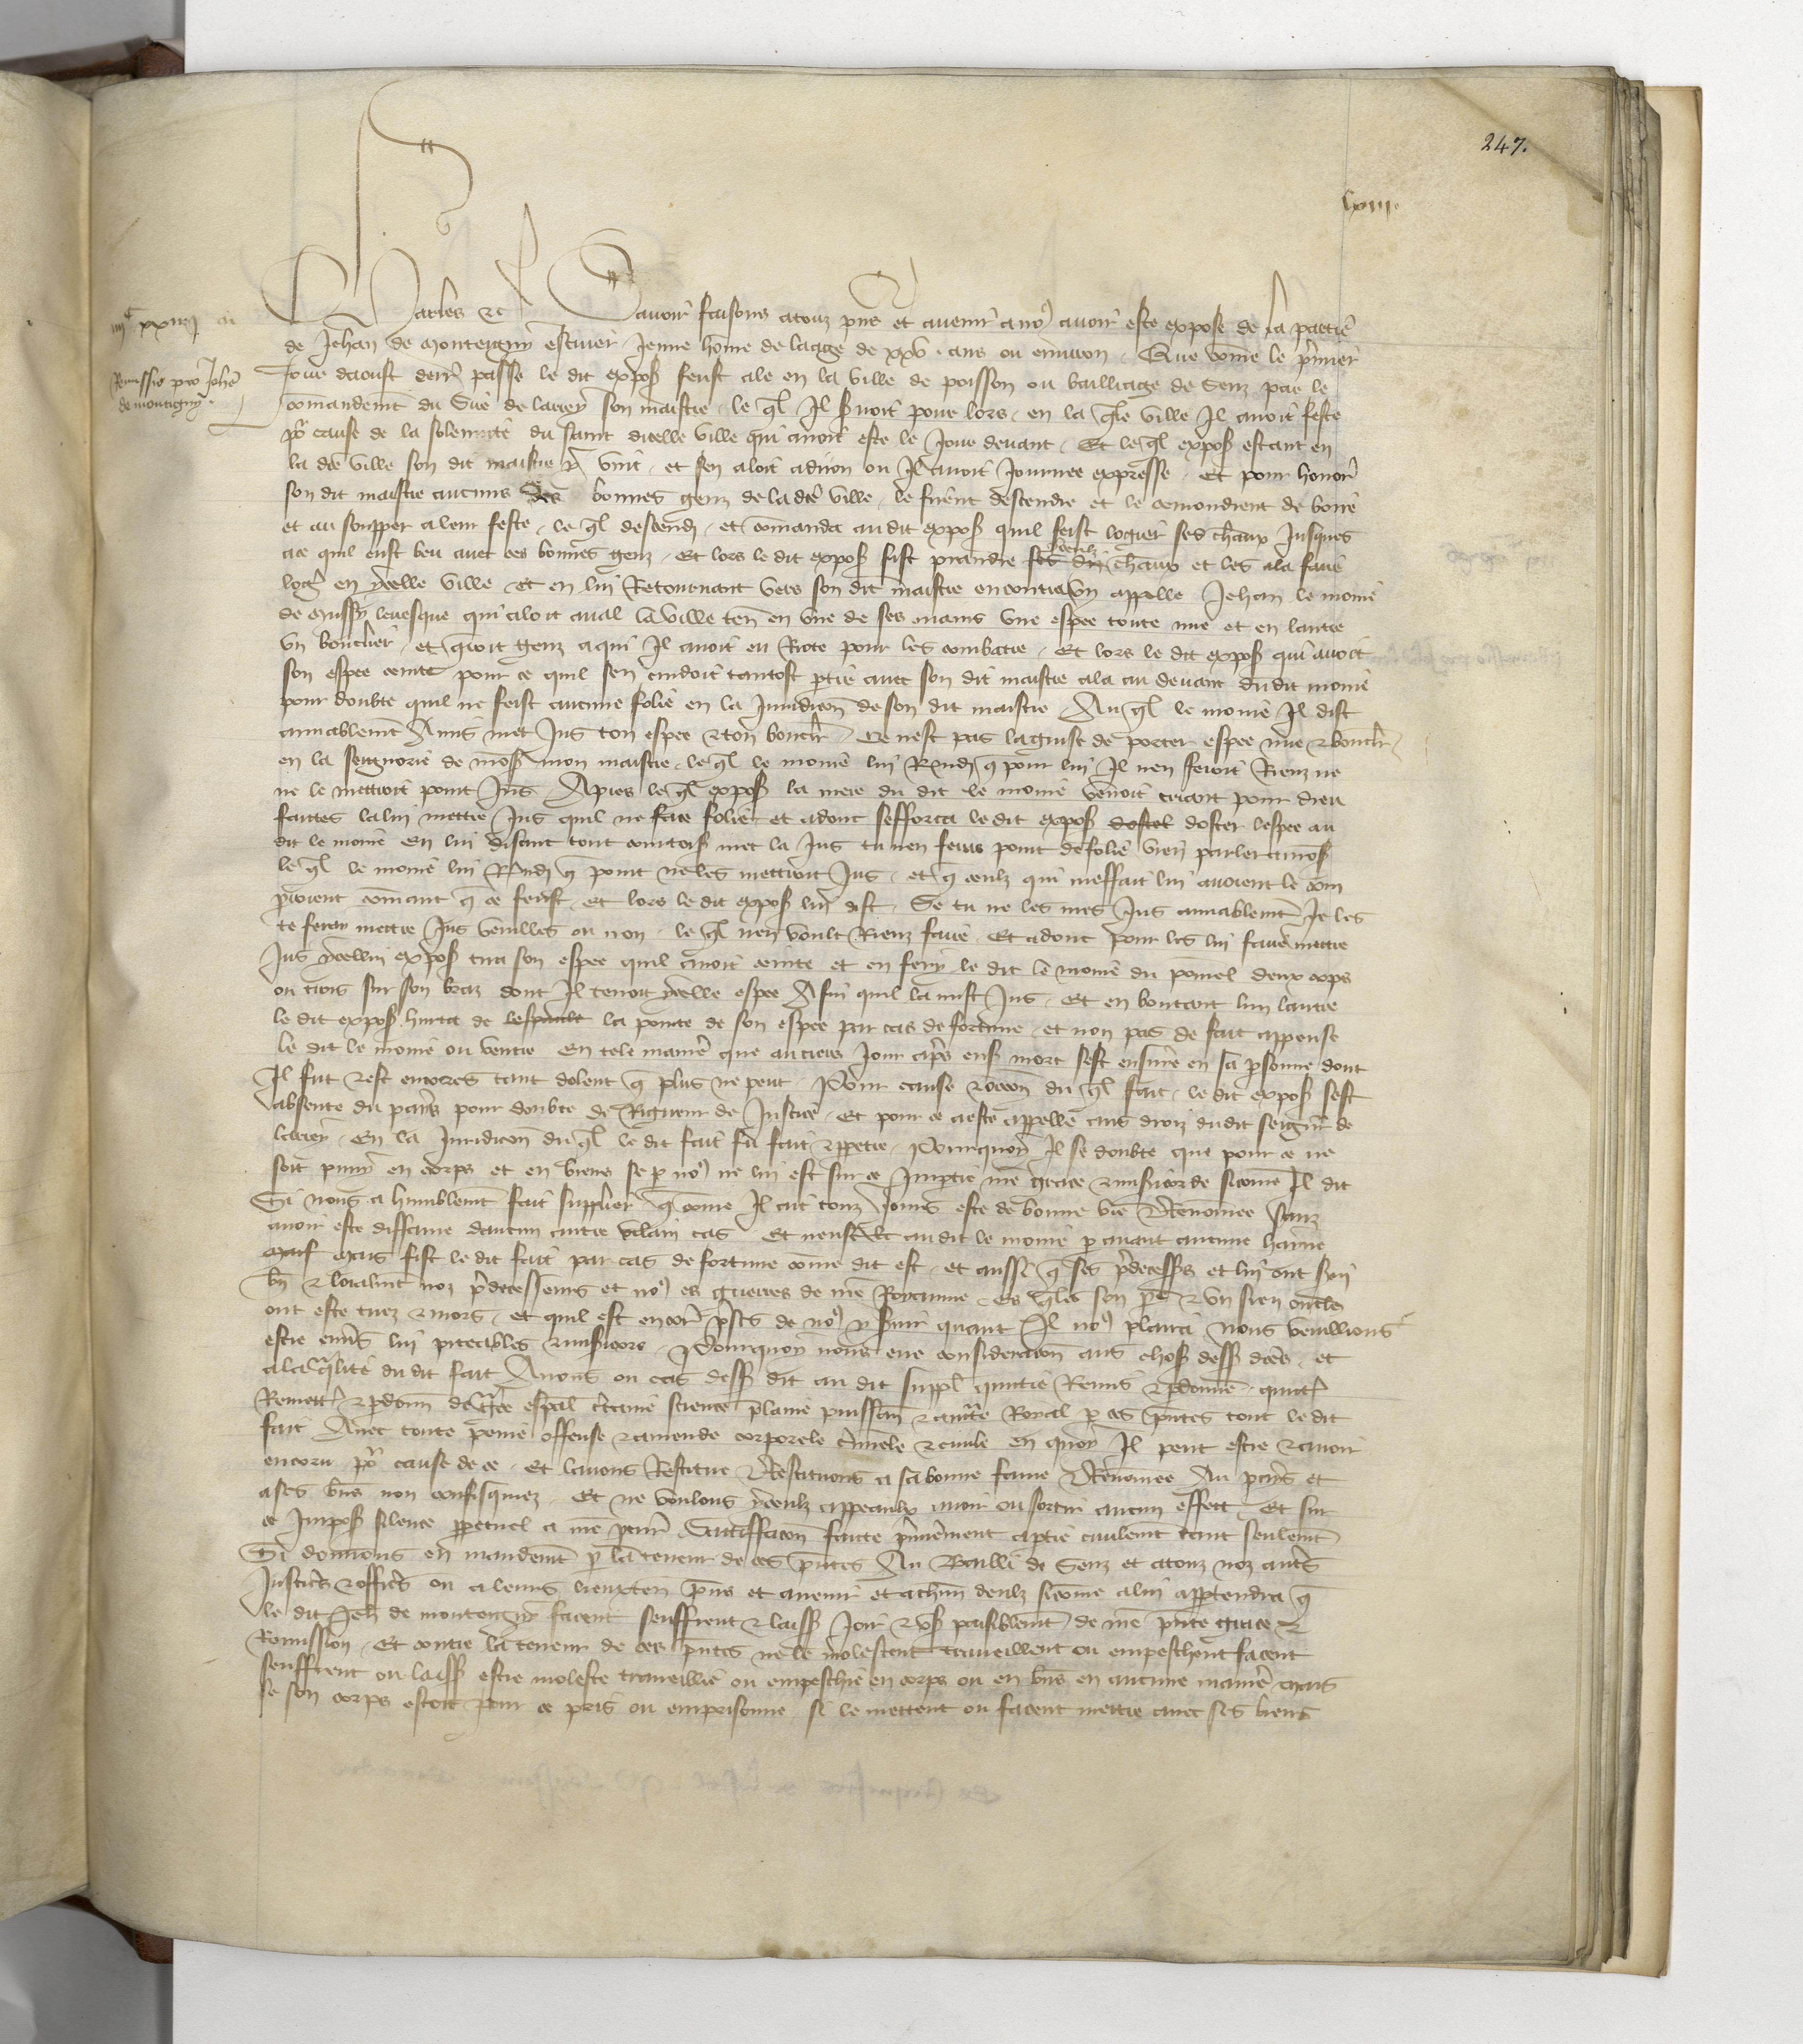 247.
lxiii.
iiiic xxiiii
Remissio pro Johe
de montigny
Charles etc Savoir faisons a touz pns et avenir a nous avoir este expose de la partie
de Jehan de monteigny escuier Jeune home de laage de xxv. ans ou environ. Que come le premier
Jour daoust derr passe le dit expos feust ale en la ville de poisson ou bailliage de Senz par le
comandemt du Sire de larrey son maistre. le ql Il svoit pour lors. en la qle ville Il avoit feste
por cause de la solennite du saint dicelle ville qui avoit este le Jour devant. Et le ql expos estant en
la dce ville son dit maistre y vint. et sen aloit a dijon ou Il avoit Journee expresse. Et pour honorer
son dit maistre aucuns des bonnes genz de la dce ville. le firent descendre et le semondrent de boire
et au soupper a leur feste. le ql descendi. et comanda au dit expos quil feist logier ses chevaux Jusques
a ce quil eust beu avec ces bonnes genz. Et lors le dit expos fist prandre ses diz chevaux et les ala faire
logr en ycelle ville. et en lui Retournant vers son dit maistre encontra un appelle Jehan le moine
de mussy levesque qui aloit aval la ville ten en une de ses mains une espee toute nue et en lautre
un bouclier. et qroit genz a qui Il avoit eu Riote pour les combatre. Et lors le dit expos qui avoit
son espee ceinte pour ce quil sen cuidoit tantost ptir avec son dit maistre ala au devant dudit moine
pour doubte quil ne feist aucune folie en la Juridicon de son dit maistre. Au ql le moine Il dist
amiablemt Amis met Jus ton espee et ton bouclr. Ce nest pas la guise de porter espee nue et bouclr
en la seignorie de mons mon maistre. le ql le moine lui Rndi q pour lui Il nen feroit Rienz ne
ne le mettroit point Jus. Apres le ql expos la mere du dit le moine venoit criant pour dieu
faites la lui mettre Jus quil ne face folie. et adonc sefforca le dit expos dostel doster lespee au
dit le moine En lui disant tout courtois met la Jus tu nen feras point de folie vien parler a mons
le ql le moine lui Rndi q point ne les mettroit Jus. et q ceulx qui meffait lui avoient le com
proient comant q ce feust. et lors le dit expos lui dist. Se tu ne les mes Jus amiablemt Je les
te feray mettre Jus veuilles ou non. le ql nen voult Rienz faire. Et adonc pour les lui faire mettre
Jus ycellui expos tira son espee quil avoit ceinte et en fery le dit le moine du pomel deux cops
ou trois sur son braz dont Il tenoit ycelle espee Afin quil la mist Jus. Et en boutant lun lautre
le dit expos hurta de la pointe de son espee par cas de fortune. et non pas de fait appense
le dit le moine ou ventre En tele maniere que au tiers Jour apres ens mort sest ensuie en sa psonne dont
Il fut et est encores tant dolent q plus ne peut. Pour cause et occon du ql fait. le dit expos sest
absente du pays pour doubte de Rigueur de Justice. Et pour ce a este appelle aus droiz dudit seigr de
larrey. En la Juridicon du ql le dit fait fu fait et ppetre. Pourquoy Il se doubte que pour ce ne
soit puny en corps et en biens se p nous ne lui est sur ce Imptie nre grace et misicorde sicome Il dit
Si nous a humblemt fait supplier q come Il ait touz Jours este de bonne vie et Renomee sanz
avoir este diffame daucun autre vilain cas Et neust au dit le moine p avant aucune haine
mais fist le dit fait par cas de fortune come dit est. et aussi q ses predecesss et lui ont svi
bn et loialmt noz predecesseurs et nous es guerres de nre Royaume. es qles son pe et un sien oncle
ont este tuez et mors. et quil est encor prests de nous y svir quant Il nous plaira nous veuillions
estre envs lui piteables et misicors. Pourquoy nous eue consideracon aus choses dess dces. et
a la qlite du dit fait Avons ou cas dess dit au dit suppl quitte Remis et pdonne. quitt
Remett et pdonn de Grce espal ctaine science plaine puissan et aucte Royal p ces pntes tout le dit
fait Avec toute peine offense et amende corporele criminele et civile en quoy Il peut estre et avoir
encoru por cause de ce. Et lavons Restitue et Restituons a sa bonne fame et Renomee Au pays et
a ses bns non confisquiez. Et ne voulons yceulx appeaulx avoir ou sortir aucun effect. Et sur
ce Impos silence ppetuel a nre pcur. Satisffacon faicte premierement a ptie civilemt tant seulemt
Si donnons en mandemt p la teneur de ces pntes Au Bailli de Senz et a touz noz autrs
Justicrs et officrs ou a leurs lieuxten pns et avenir et a chun deulz sicome a lui apptendra q
le dit Jeh de monteigny facent seuffrent et laiss Joir et us paisiblemt de nre pnte grace et
Remission. Et contre la teneur de ces pntes ne le molestent traveillent ou empeschent facent
seuffrent ou laiss estre moleste traveillie ou empeschie en corps ou en bns en aucune manie mais
se son corps estoit pour ce pris ou emprisonne. si le mettent ou facent mettre avec ses biens